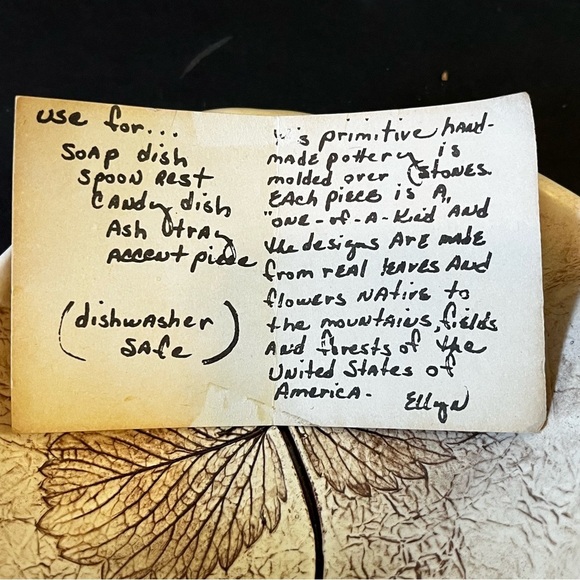 use for...
Soap dish
Spoon Rest
Candy dish
Ash tray
Accent piece
(dishwasher
safe)
is primitive hand-
made pottery is
molded over stones.
Each piece is A
"one-of-A-Kind And
the designs Are made
from real leaves And
flowers Native to
the mountains, fields
And forests of the
United States of
America.
Ellyn